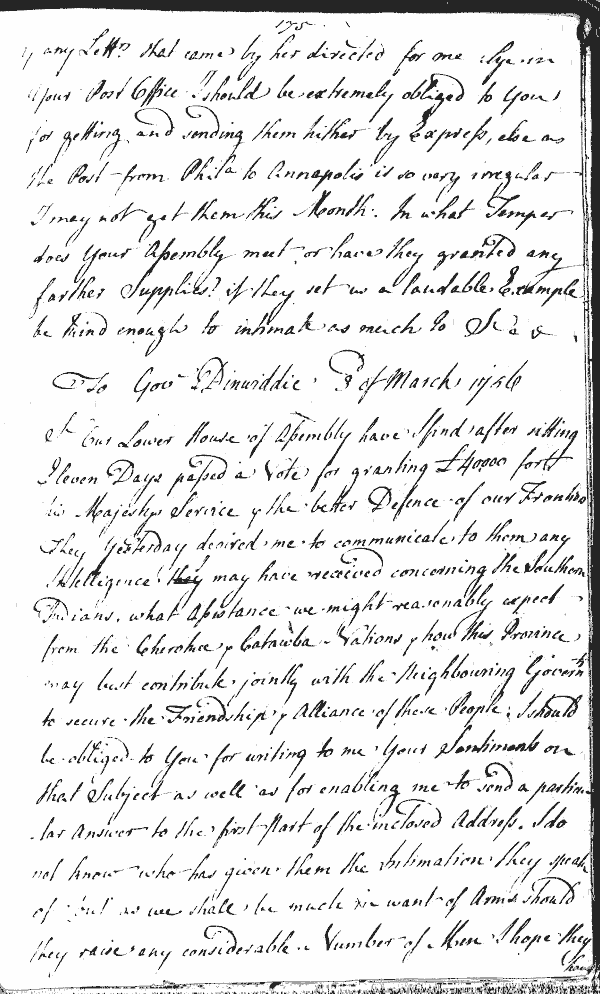 175
if any Lettrs. that came by her directed for me lye in
Your Post Office I should be extremely obliged to You
for getting and sending them hither by Express, else as
the Post from Phila to Annapolis is so very irregular
I may not get them this Month. In what Temper
does Your Assembly meet or have they granted any
farther Supplies? if they set us a laudable Example
be kind enough to intimate as much to Sr. &a &
To Govr. Dinwiddie 8 of March 1756
Sr Our Lower House of Assembly have I find after sitting
Eleven Days passed a Vote for granting £40000 for
his Majestys Service & the better Defence of our Frontiers
They Yesterday desired me to communicate to them any
Intelligence they may have received concerning the Southern
Indians, what Assistance we might reasonably expect
from the Cherokee & Catawba Nations & how this Province
may best contribute jointly with the Neighbouring Governts
to secure the Friendship & Alliance of these People; I should
be obliged to You for writing to me Your Sentiments on
that Subject as well as for enabling me to send a particu
lar Answer to the first Part of the inclosed Address. I do
not know who has given them the Intimation they speak
of but as we shall be much in want of Arms should
they raise any considerable Number of Men I hope they